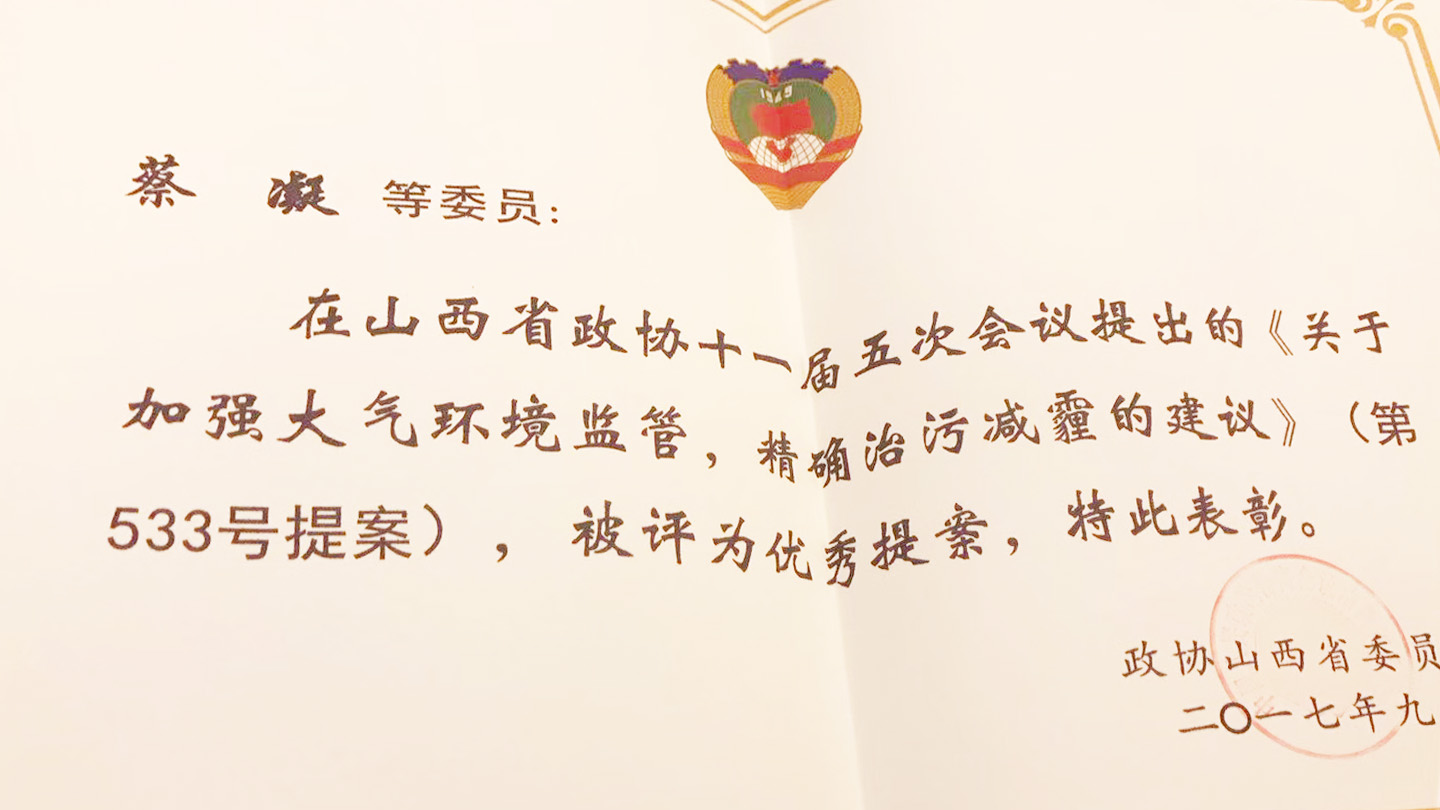 1949
蔡 凝 等委员:
在山西省政协十一届五次会议提出的《关于
加强大气环境监管,精确治污减霾的建议》(第
533号提案),被评为优秀提案,特此表彰。
政协山西省委员
二〇一七年九